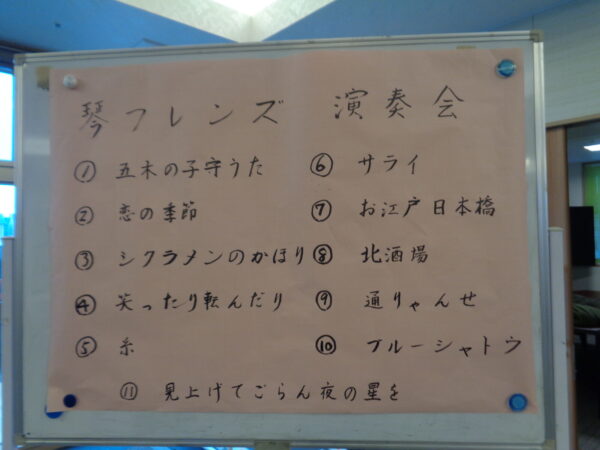 琴フレンズ 演奏会
① 五木の子守うた
② 恋の季節
③ シクラメンのかほり
④ 笑ったり転んだり
⑤ 糸
⑥ サライ
⑦ お江戸日本橋
⑧ 北酒場
⑨ 通りゃんせ
⑩ ブルーシャトウ
⑪ 見上げてごらん夜の星を